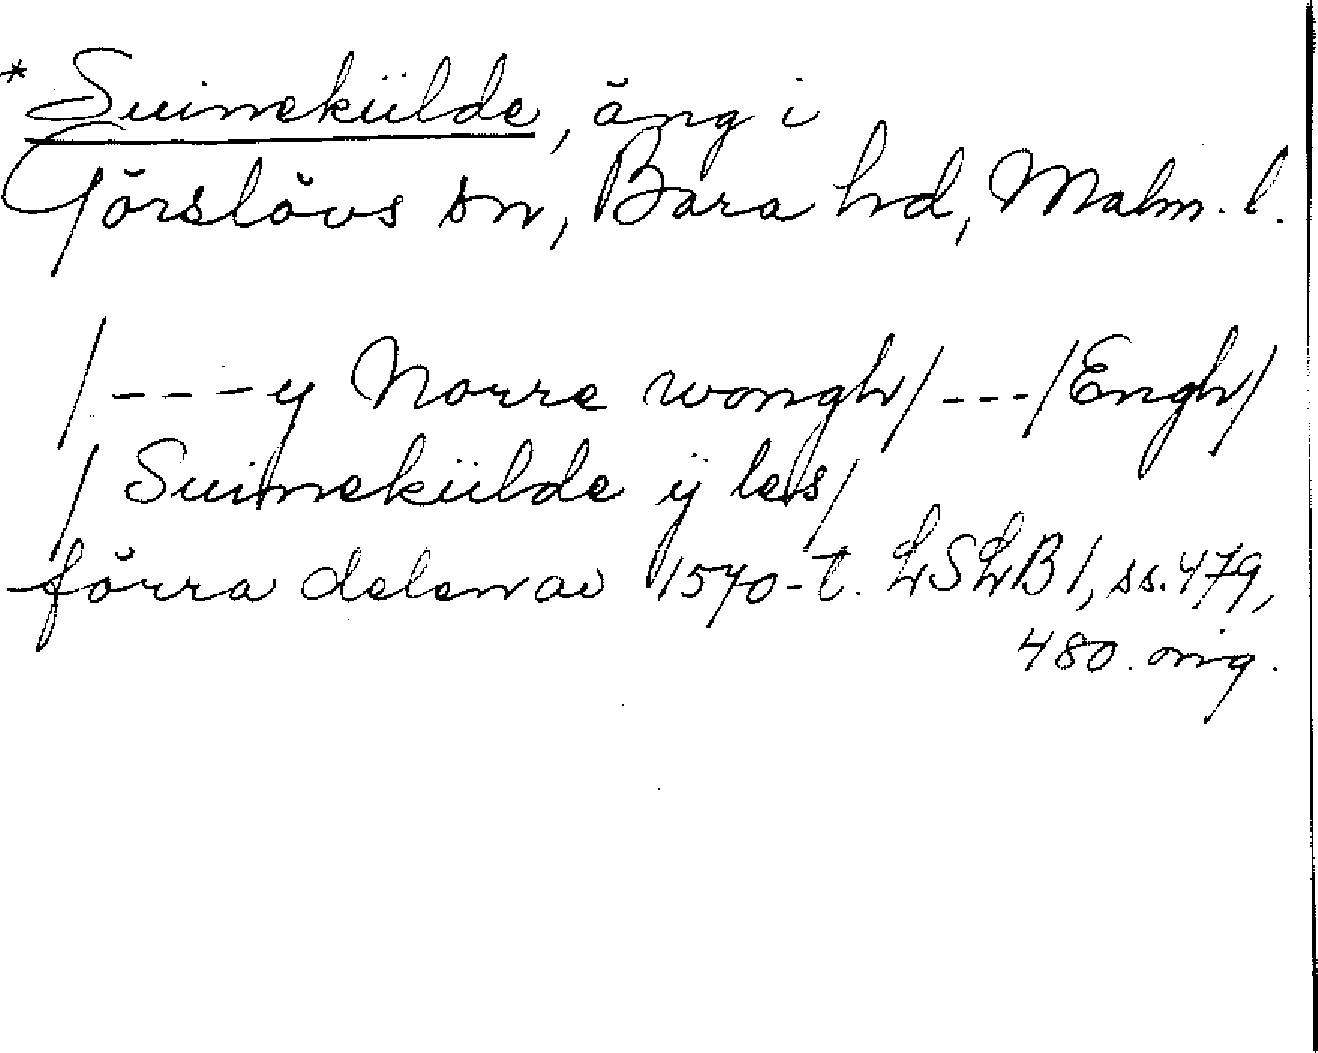 *Suinekülde, äng i
Görslövs sn, Bara hd, Malm. l.
/---y Norre wongh/---/Engh/
/Suinekülde ÿ les/
förra delen av 1570-t. LSLB 1, ss. 479,
480. orig.